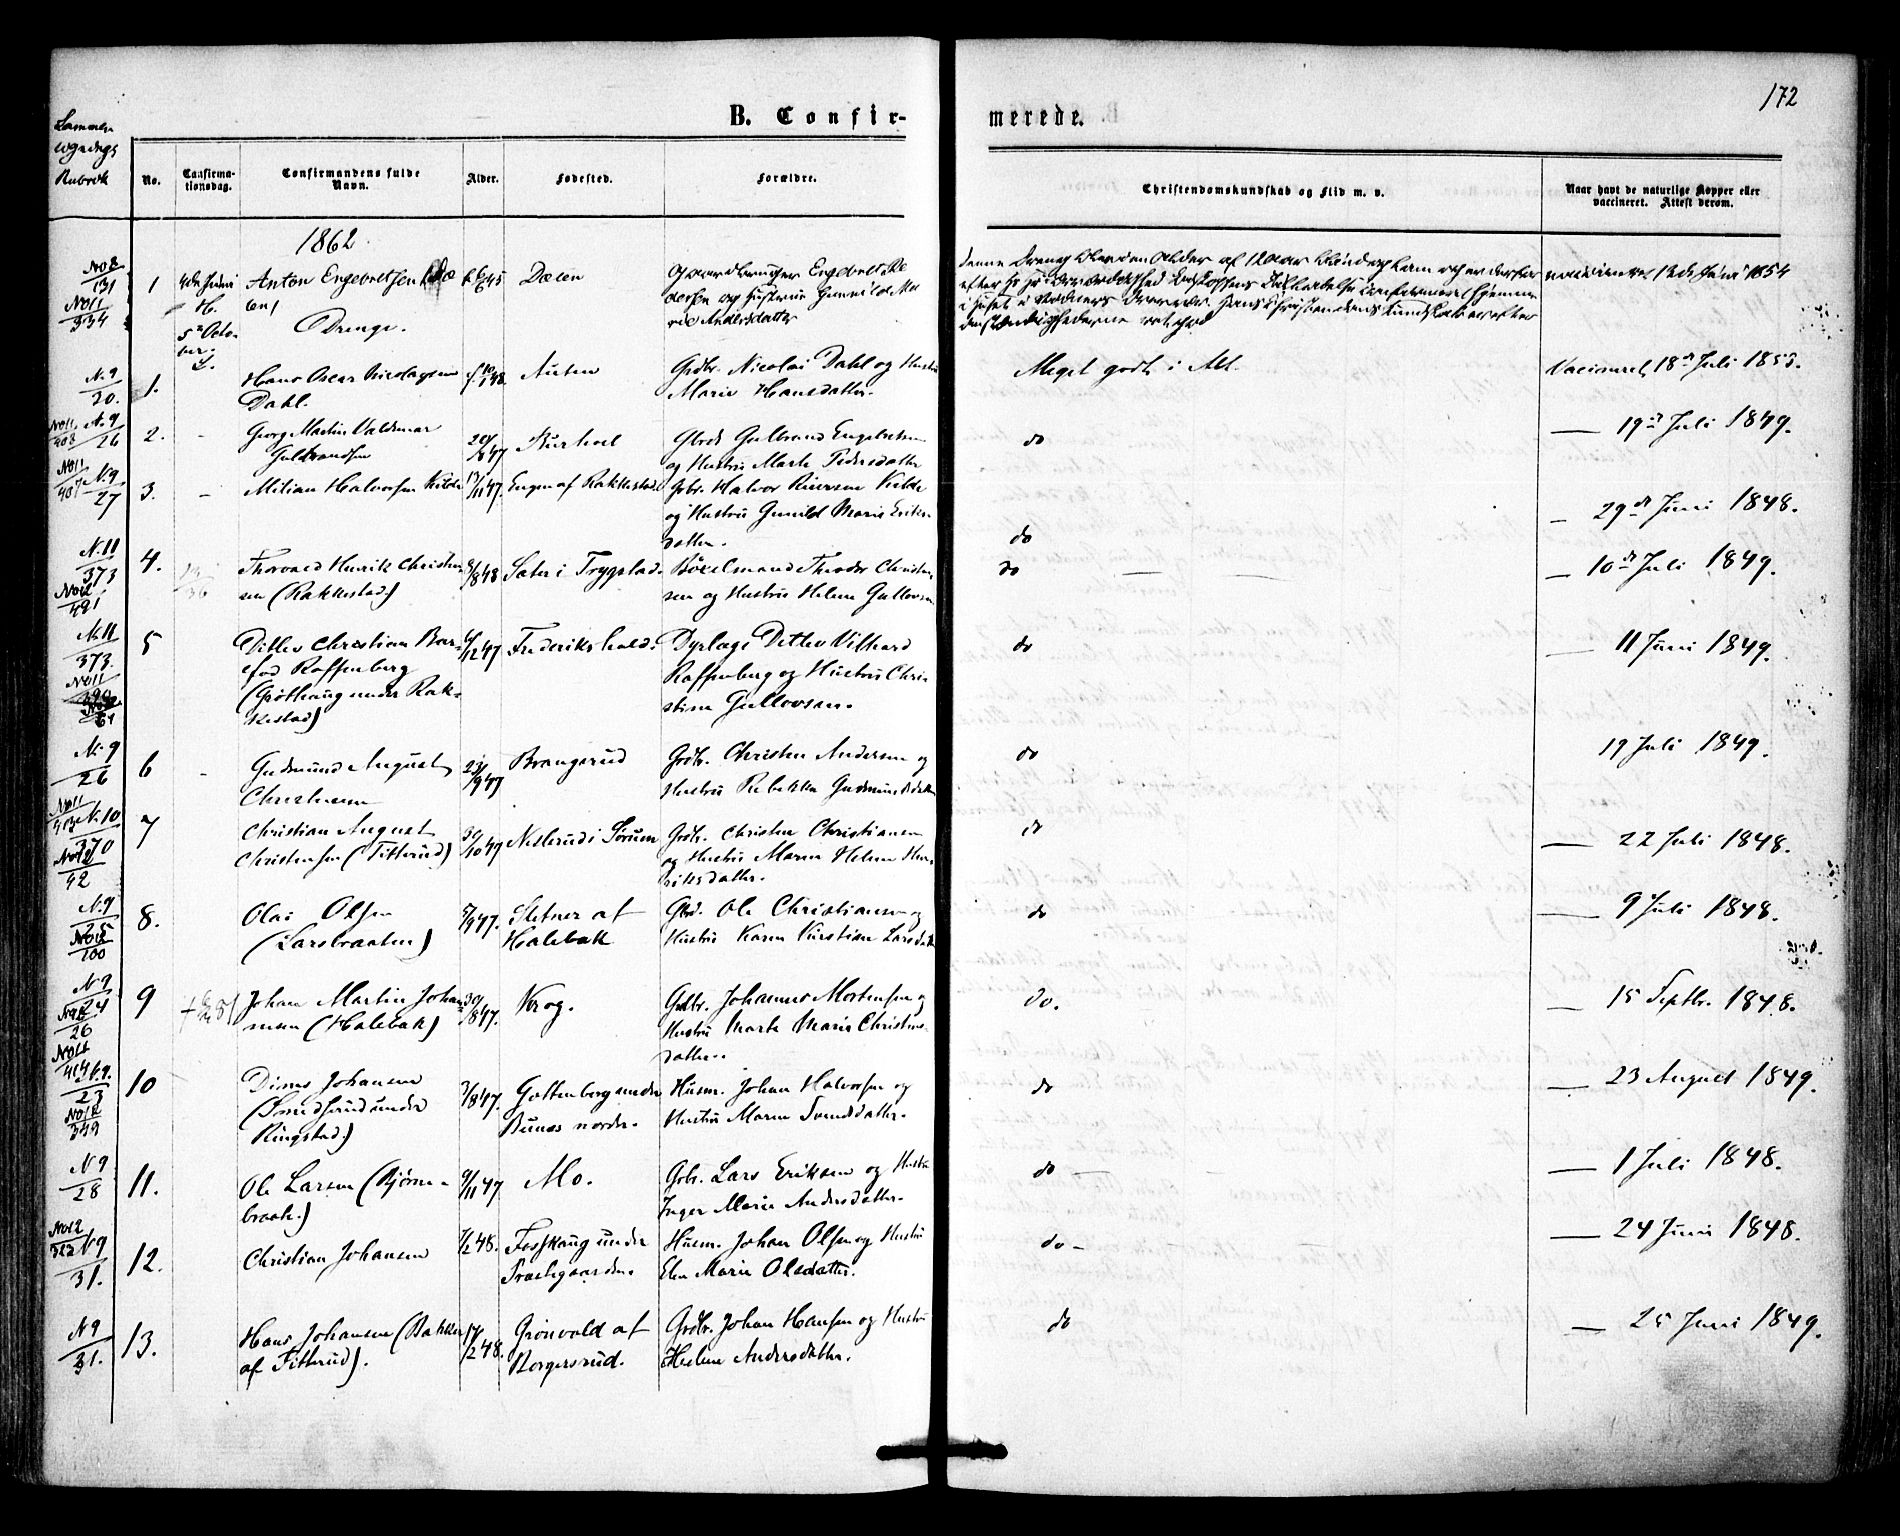 172
B. Confir-
merede.
Sammen
Rubrik
No.
Confirma-
tionsdag.
Confirmandens fulde
Navn.
Alder.
Fødested.
Forældre.
Christendomskundskab og Flid m. v.
Naar havt de naturlige Kopper eller
vaccineret. Attest derom.
1862
No 8
131
No 11
334
1
Anton Engebretsen
Gaardbruger Engebret Pe
dersen og Hustrue Gunnild Ma
rie Andersdatter
vaccineret 12 de Juni 1854
Drenge.
5te Octo-
ber.
N. 9
20.
1.
Hans Oscar Nicolaysen
Dahl.
Auten
Grdbr. Nicolai Dahl og Hustru
Marie Hansdatter.
Meget godt i Alt.
Vaccineret 18de Juli 1853.
No 11
408
N. 9
26
2.
Georg Martin Valdemar
Gulbrandsen
Gbrd. Gulbrand Engebretsen
og Hustru Marte Pedersdatter
do
— 19de Juli 1849.
No 11
407
N. 9
27
3.
Milian Halvorsen Kilde
13/11 47.
Engen af Rakkestad
Grbr. Halvor Iversen Kilde
og Hustru Gunild Marie Eriks-
datter.
do
— 29de Juni 1848.
N. 11
373
No 12
421
4.
Thorvald Henrik Christen-
sen (Rakkestad)
8/8 48
Sater i Trygstad.
Bøxelmand Theodor Christen-
sen og Hustru Helene Gullovsen
do
— 10de Juli 1849.
N. 11
373.
No 11
61
5
Ditlev Christian Bar-
fod Raffenberg
(Grøthaug under Rak-
kestad)
/12 47
Frederikshald.
Dyrlæge Detlev Vilhard
Raffenberg og Hustru Chri-
stine Gullovsen.
do
— 11 Juni 1849.
N. 9
26
6
Gudmund August
Christensen
23/9 47
Brangerud
Grdbr. Christen Andersen og
Hustru Rebekka Gudmundsdatter
do
19 Juli 1849.
No 11
413
N. 10
370
No 12
42
7
Christian August
Christensen (Titterud)
30/10 47
Neslerud i Sørum
Grdbr. Christen Christiansen
og Hustru Maren Helene Hen-
riksdatter.
do
— 22 Juli 1848.
N. 9
25
No 12
100
8.
Olai Olsen
(Larsbraaten)
/9 47.
Sletner af
Halebak
Gbd. Ole Christiansen og
Hustru Karen Kirstine Larsdatter
do
— 9 Juli 1848.
N 9
24
No 12
26
9
Johan Martin Johan-
nesen (Halebak)
30/8 47.
Krog.
Grdbr. Johannes Mortensen og
Hustru Marte Marie Christens-
datter.
do.
— 15 Septbr. 1848.
No 11
414
N. 9.
23
No 12
339
10
Dines Johansen
(Smedsrud under
Ringstad)
3/8 47.
Gottenberg under
Bunæs nordr.
Husm. Johan Halvorsen og
Hustru Maren Svendsdatter.
do
— 23 August 1849.
N 9
28
11.
Ole Larsen (Bjørne-
braat.)
9/11 47
Mo.
Grbr. Lars Eriksen og Hustru
Inger Marie Andersdatter.
do —
— 1 Juli 1848.
No 12
N 9
31.
12.
Christian Johansen
7/2 48.
Fosshaug under
Præstegaarden
Husm. Johan Olsen og Hustru
Elen Marie Olsdatter.
do —
— 24 Juni 1848.
N 9
31.
13.
Hans Johansen (Bakken
af Titterud).
17/2 48.
Grønvold af
Borgersrud.
Grdbr. Johan Hansen og Hustru
Helene Andersdatter.
do
— 25 Juni 1849.